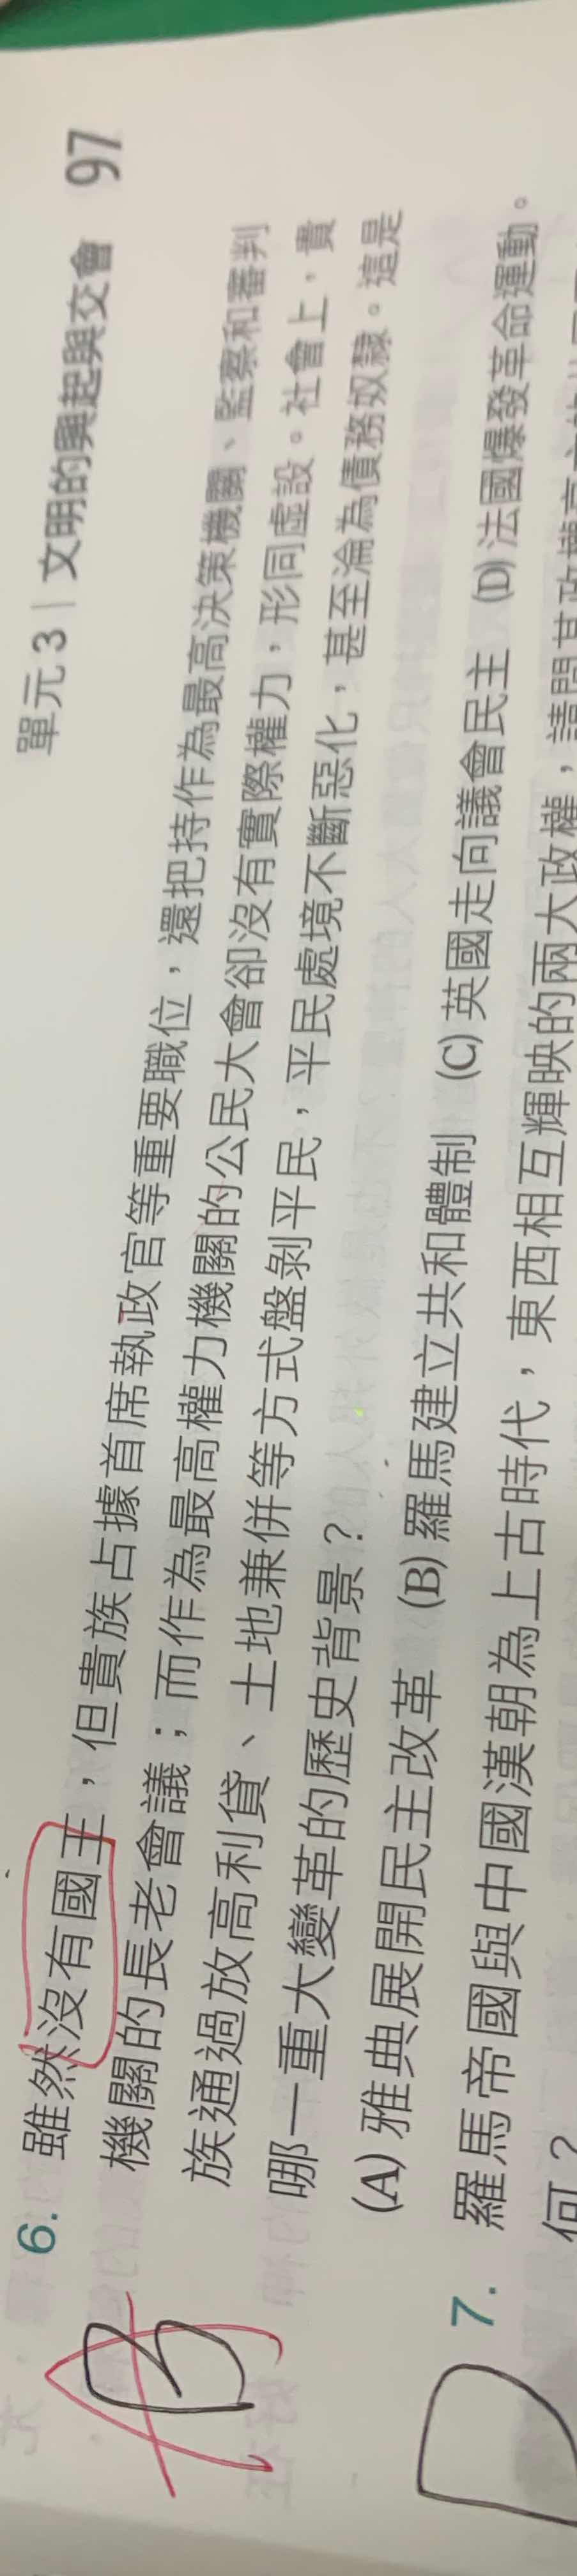 單元 3｜文明的興起與交會 97
6. 雖然沒有國王，但貴族占據首席執政官等重要職位，還把持作為最高決策機關、監察和審判
機關的長老會議；而作為最高權力機關的公民大會卻沒有實際權力，形同虛設。社會上，貴
族通過放高利貸、土地兼併等方式盤剝平民，平民處境不斷惡化，甚至淪為債務奴隸。這是
哪一重大變革的歷史背景？
(A) 雅典展開民主改革 (B) 羅馬建立共和體制 (C) 英國走向議會民主 (D) 法國爆發革命運動。
B
A
D
7. 羅馬帝國與中國漢朝為上古時代，東西相互輝映的兩大政權，請問其政權
何？